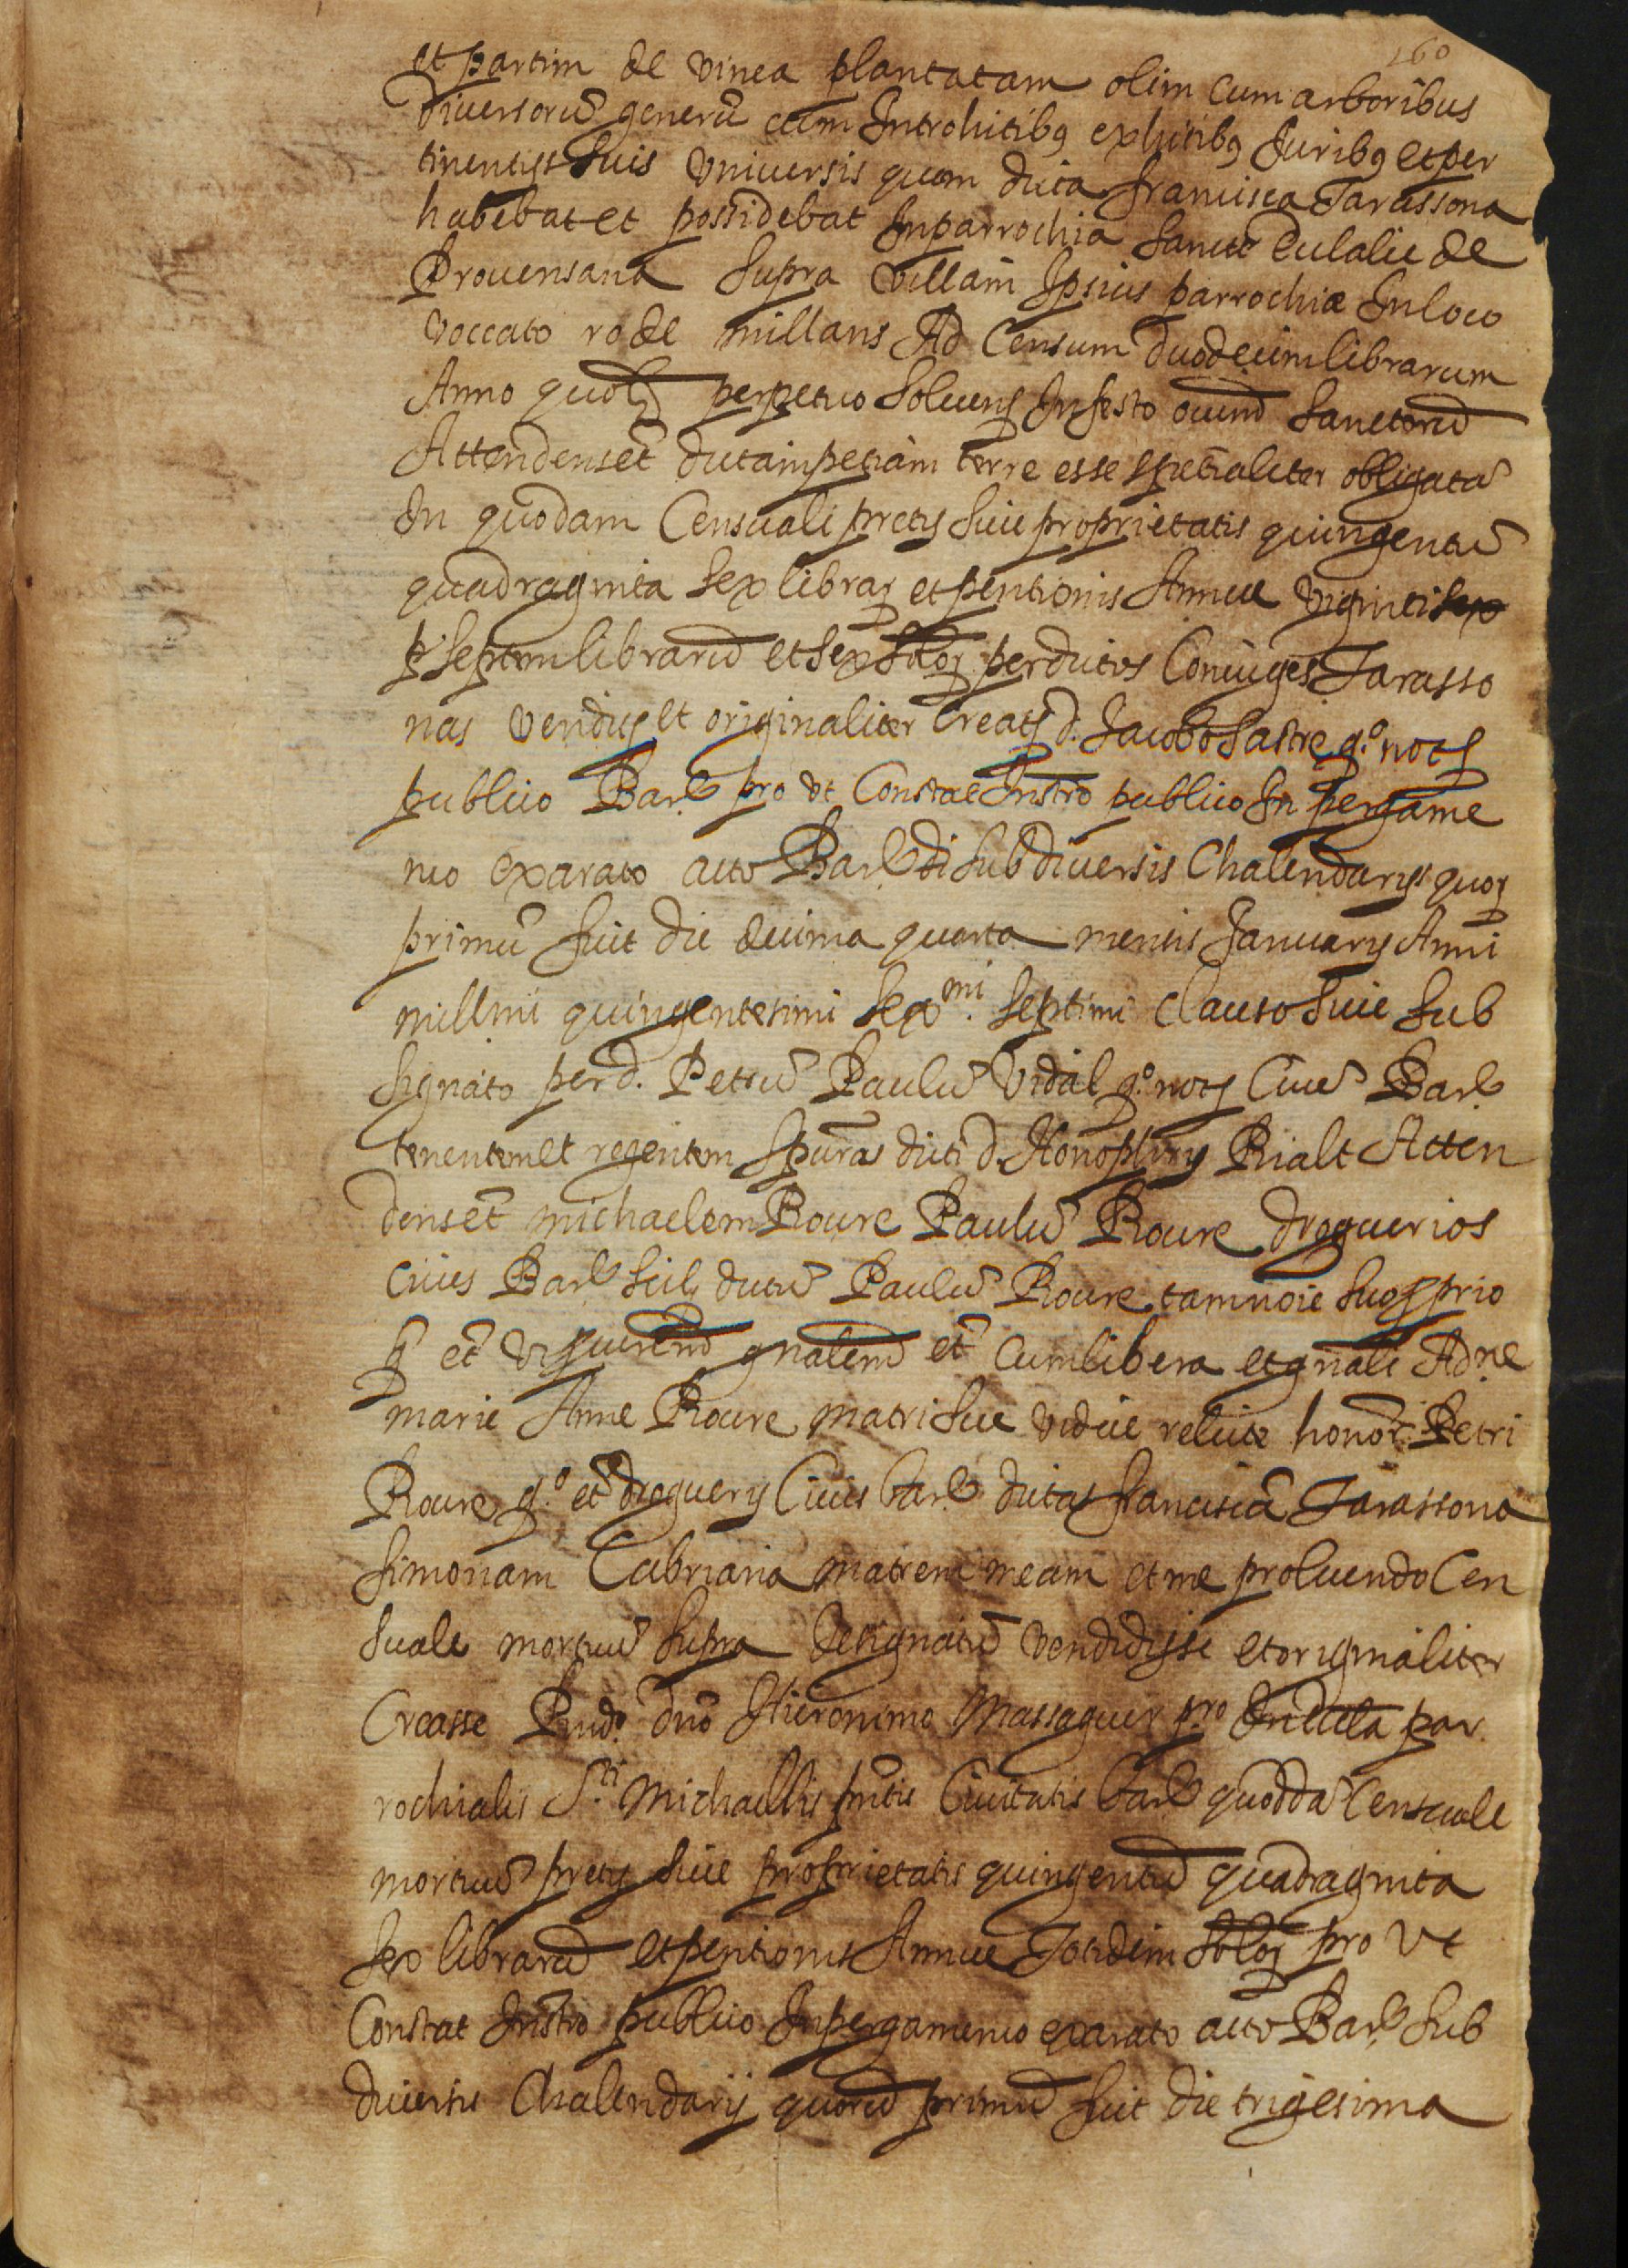 160
et partim de vinea plantatam olim cum arboribus
diversorũ generũ cum Introhitibꝯ exhitibꝯ Juribꝯ et per
tinentijs suis Vniversis quam dicta Francisca Tarassona
habebat et possidebat In parrochia Sancte Eulalie de
Provensana supra villam Ipsius parrochiæ In loco
voccato rodemillans Ad Censum duodecim librarum
Anno quolꝫ perpetuo solvens In festo oiũm Sanctorũ
Attendens et dictam petiam terre esse spetialiter obligatã
In quodam Censuali pretij sive proprietatis quingentũ
quadraginta sex librarꝫ et pentionis Annue viginti sex
septem librarũ et sex soldorꝫ per dictos Coniuges Tarasso
nas venditꝫ et originaliter Creatꝫ d. Jacobo Sastre q.º notꝫ
publico Barᵉ pro vt Constat Instrō publico In pergame
neo exarato acto Barᵉ di sub diversis Chalendarijs quorꝫ
primũ fuit die decima quarta mensis Januarij Anni
millmi quingentesimi sexᵐⁱ. septimi clauso sive sub
signato per d. Petrũ Paulũ Vidal q.º notꝫ Civẽ Barᵉ
tenentem et regentem spturas dicti d. Honophrij Rialt Atten
dens et michaelem Roure Paulũ Roure droguerios
cives Barᵉ scilꝫ dictũ Paulũ Roure tam noie suo prio
qꝫ et vt gnalem et cum libera et gnali Ad.ne
marie Anne Roure matri sue vidue relicte honor. Petri
Roure q.º et droguerij Civis Barᵉ dictas Franciscã Tarassona
Simonam Cabriana matrem meam et me pro luendo Cen
suale mortuũ supra designatũ vendidisse et originaliter
Creasse Rndo. dño Hieronimo Massaguer pro In Ecclᵃ par
rochialis S.ti Michaellis pntis Civitatis Barᵉ quoddã Censuale
mortuũ pretij sive proprietatis quingentũ quadraginta
sex librarũ et pentionis Annue Totidem solorꝫ pro vt
Constat Instrō publico In pergameneo exarato acto Barᵉ sub
diversis Chalendarij quorũ primũ fuit die trigesima